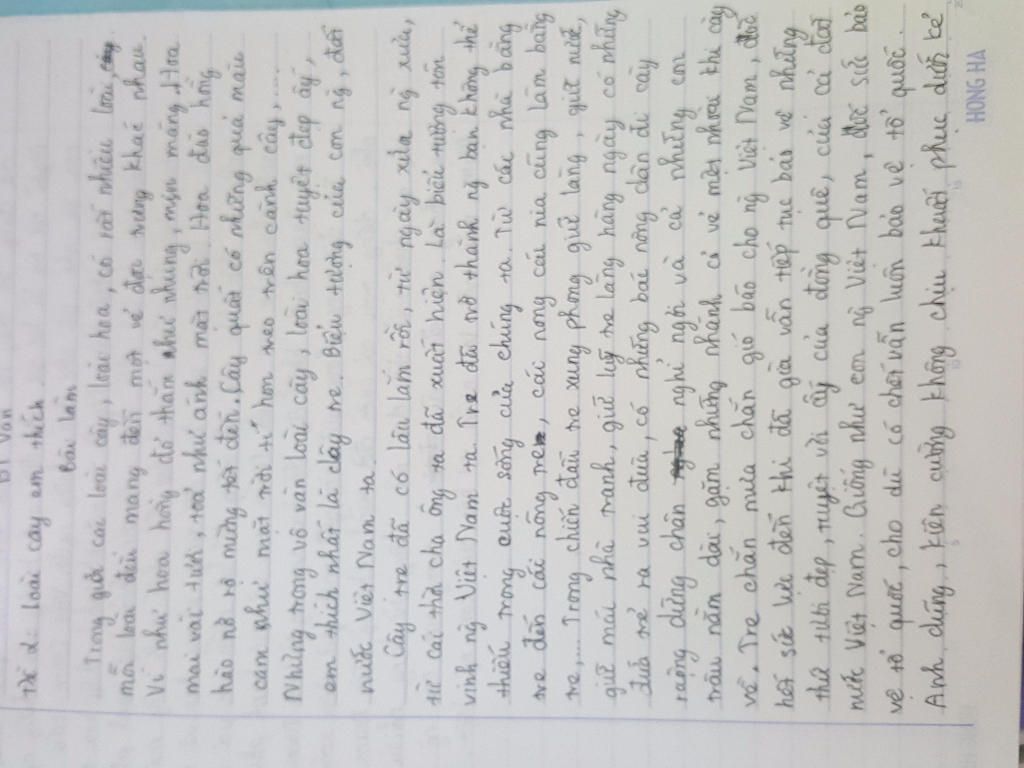 BT Văn
Đề 2: Loài cây em thích.
Bài làm
Trong giữa các loài cây, loài hoa, có rất nhiều loài,
mỗi loài đều mang đến một vẻ đặc trưng khác nhau.
Ví như hoa hồng đỏ thắm như nhung, mịn màng. Hoa
mai vài tươi, toả như ánh mặt trời. Hoa đào hồng
hào nở rộ mừng tết đến. Cây quất có những quả màu
cam như mặt trời tí hon treo trên cành cây,....
Nhưng trong vô vàn loài cây, loài hoa tuyệt đẹp ấy,
em thích nhất là cây tre. Biểu tượng của con ng, đất
nước Việt Nam ta.
Cây tre đã có lâu lắm rồi, từ ngày xửa ng xưa,
từ cái thời cha ông ta đã xuất hiện. Là biểu tượng tôn
vinh ng Việt Nam ta. Tre đã trở thành ng bạn không thể
thiếu trong cuộc sống của chúng ta. Từ cái nhà bằng
tre đến cái nông tre, cái nong cái nia cũng làm bằng
tre,.... Trong chiến đấu tre xung phong giữ làng, giữ nước,
giữ mái nhà tranh, giữ lũy tre làng hằng ngày có những
đứa trẻ ra vui đùa, có những bác nông dân đi cày
ruộng dừng chân nghỉ ngơi và cả những con
trâu nằm dài, gặm nhưng nhành cỏ vẻ mệt nhoài khi cày
về. Tre chắn mưa chắn gió bão cho ng Việt Nam, dốc
hết sức lực đến khi đã già vẫn tiếp tục bảo vệ những
thứ tươi đẹp, tuyệt vời ấy của đồng quê, của cả đất
nước Việt Nam. Giống như con ng Việt Nam, dốc sức bảo
vệ tổ quốc, cho dù có chết vẫn luôn bảo vệ tổ quốc.
Anh dũng, kiên cường không chịu khuất phục dưới kẻ
HONG HA